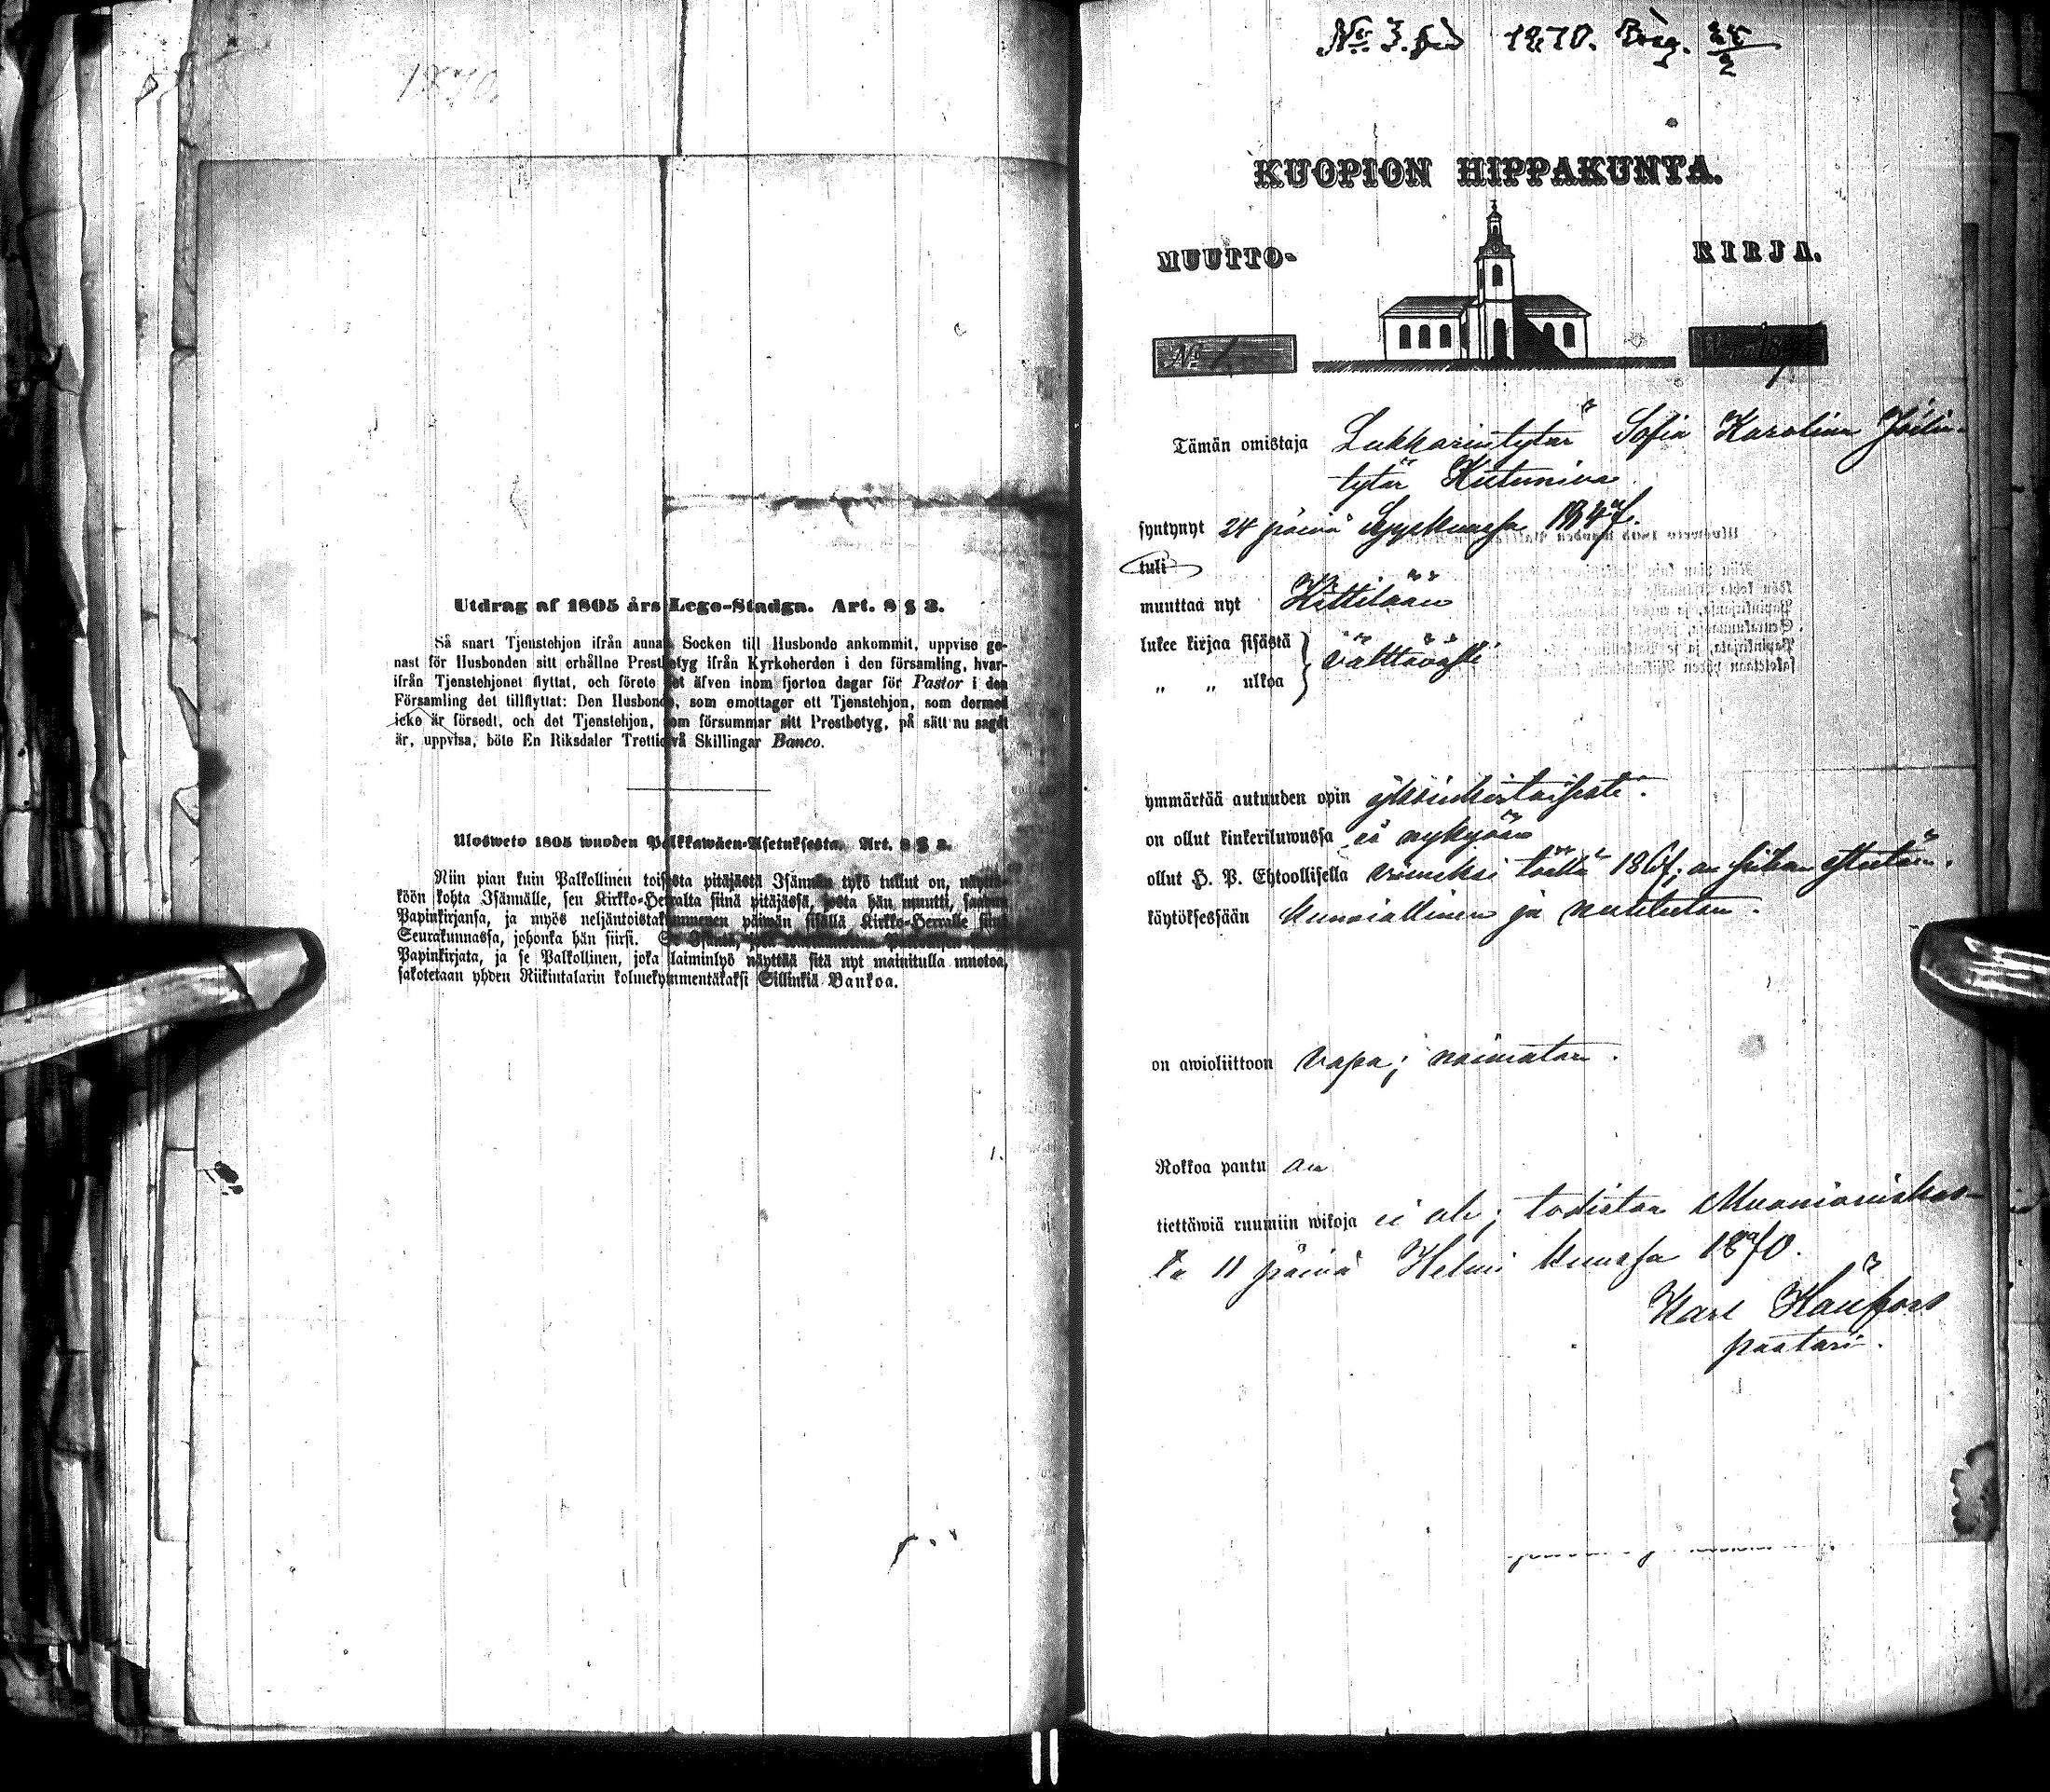 1870.
Utdrag af 1805 års Lego-Stadga. Art. 8 § 3.
Så snart Tjenstehjon ifrån annan Socken till Husbonde ankommit, uppvise ge-
nast för Husbonden sitt erhållne Prestbetyg ifrån Kyrkoherden i den församling, hvar-
ifrån Tjenstehjonet flyttat, och förete det äfven inom fjorton dagar för Pastor i den
Församling det tillflyttat: Den Husbonde, som emottager ett Tjenstehjon, som dermed
icke är försedt, och det Tjenstehjon, som försummar sitt Prestbetyg, på sätt nu sagdt
är, uppvisa, böte En Riksdaler Trettiotvå Skillingar Banco.
Ulosweto 1805 wuoden Palkkawäen-Asetuksesta. Art. 8 § 3.
Niin pian kuin Palkollinen toisesta pitäjästä Isännän tykö tullut on, näyttä-
köön kohta Isännälle, sen Kirkko-Herralta siinä pitäjässä, josta hän muutti, saadun
Papinkirjansa, ja myös neljäntoistakymmenen päiwän sisällä Kirkko-Herralle siinä
Seurakunnassa, johonka hän siirsi. Se Isäntä, joka Palkollisen
Papinkirjata, ja se Palkollinen, joka laiminlyö näyttää sitä nyt mainitulla muotoa,
sakotetaan yhden Riikintalarin kolmekymmentäkaksi Sillinkiä Bankoa.
No 3. 1870.
KUOPION HIPPAKUNTA.
MUUTTO- KIRJA.
No 1
Tämän omistaja Lukkarintytär Sofia Karolina
tytär
syntynyt 24 päivä Syyskuussa 1847.
tuli
muuttaa nyt Kittilään
lukee kirjaa sisästä } välttävästi
„ „ ulkoa
ymmärtää autuuden opin yksinkertaisesti.
on ollut kinkeriluwussa ei nykyään
ollut H. P. Ehtoollisella viimeksi täällä 1867; on
käytöksessään kunniallinen ja nuhteeton.
on awioliittoon vapa; naimaton.
Rokkoa pantu on
tiettäwiä ruumiin wikoja ei ole; todistaa Muonionniskas-
ta 11 päivä Helmi kuussa 1870.
Karl
pastori.